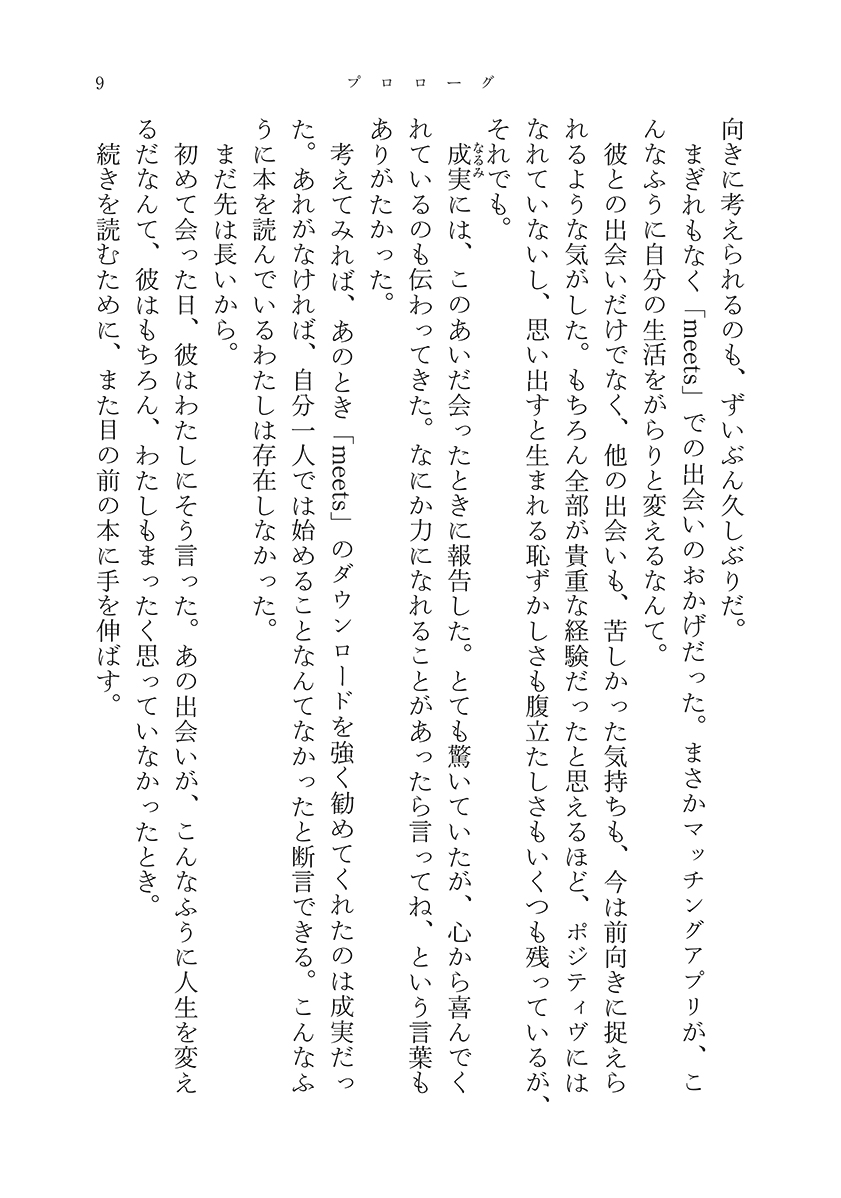 9
プロローグ
向きに考えられるのも、ずいぶん久しぶりだ。
まぎれもなく「meets」での出会いのおかげだった。まさかマッチングアプリが、こ
んなふうに自分の生活をがらりと変えるなんて。
彼との出会いだけでなく、他の出会いも、苦しかった気持ちも、今は前向きに捉えら
れるような気がした。もちろん全部が貴重な経験だったと思えるほど、ポジティヴには
なれていないし、思い出すと生まれる恥ずかしさも腹立たしさもいくつも残っているが、
それでも。
成実には、このあいだ会ったときに報告した。とても驚いていたが、心から喜んでく
なるみ
れているのも伝わってきた。なにか力になれることがあったら言ってね、という言葉も
ありがたかった。
考えてみれば、あのとき「meets」のダウンロードを強く勧めてくれたのは成実だっ
た。あれがなければ、自分一人では始めることなんてなかったと断言できる。こんなふ
うに本を読んでいるわたしは存在しなかった。
まだ先は長いから。
初めて会った日、彼はわたしにそう言った。あの出会いが、こんなふうに人生を変え
るだなんて、彼はもちろん、わたしもまったく思っていなかったとき。
続きを読むために、また目の前の本に手を伸ばす。